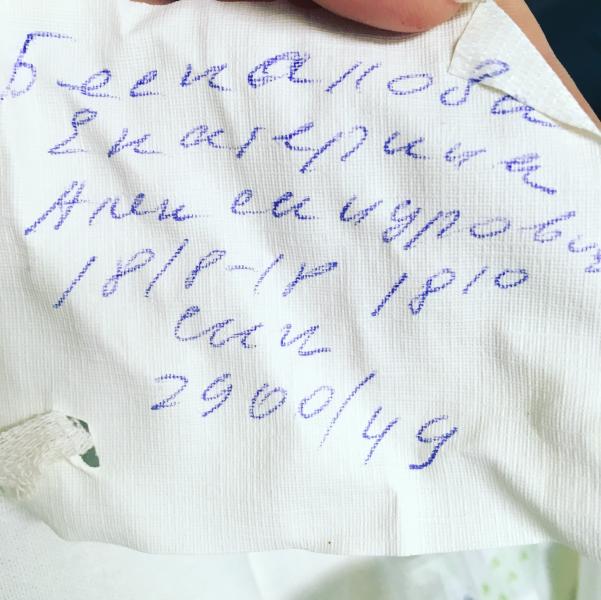 Беспалова
Екатерина
Александрович
1818-18 1810
сын
2900/49